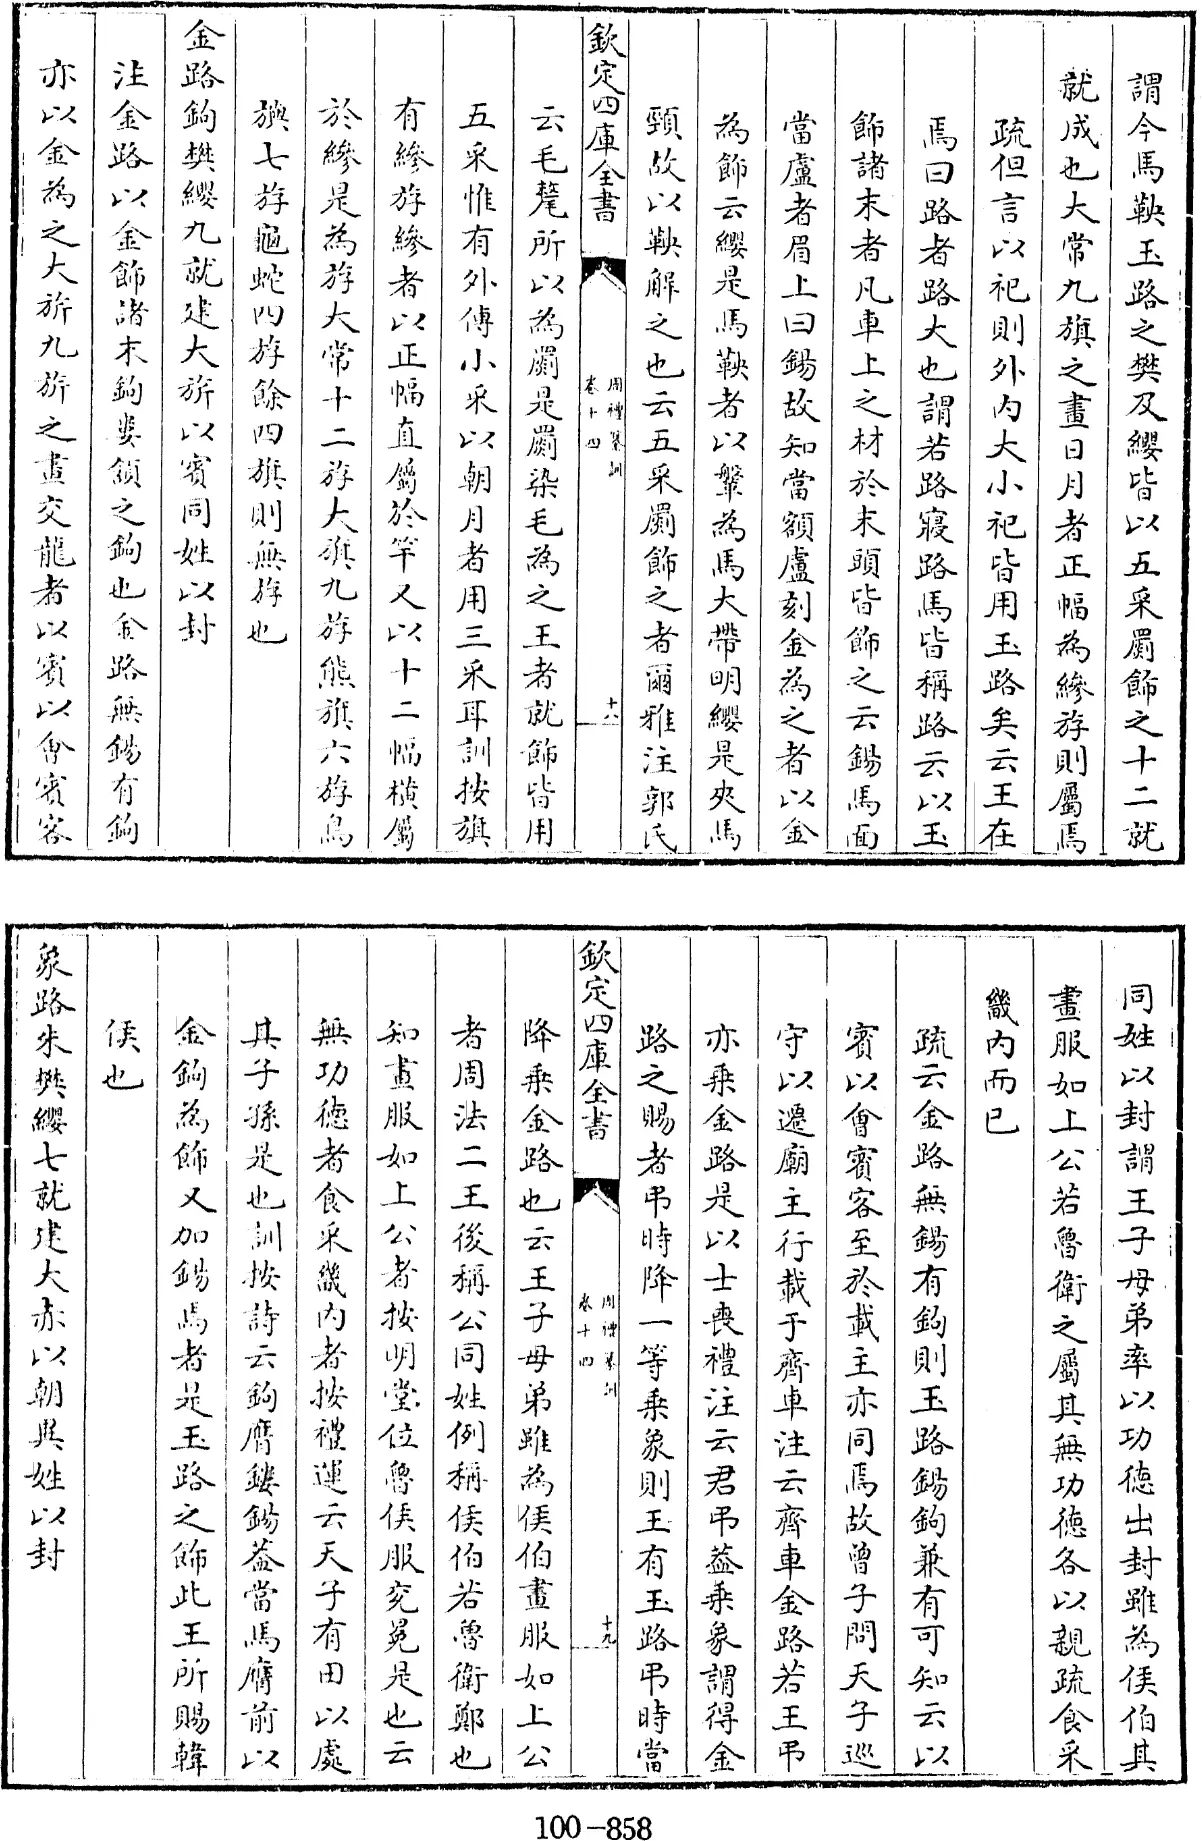 謂今馬鞅玉路之樊及纓皆以五采罽飾之十二就
就成也大常九旗之畫日月者正幅為縿斿則屬焉
疏但言以祀則外內大小祀皆用玉路矣云王在
焉曰路者路大也謂若路寢路馬皆稱路云以玉
飾諸末者凡車上之材於末頭皆飾之云鍚馬面
當盧者眉上曰鍚故知當額盧刻金為之者以金
為飾云纓是馬鞅者以鞶為馬大帶明纓是夾馬
頸故以鞅解之也云五采罽飾之者爾雅注郭氏
欽定四庫全書
周禮纂訓
卷十四
十八
云毛氂所以為罽是罽染毛為之王者就飾皆用
五采惟有外傳小采以朝月者用三采耳訓按旗
有縿斿縿者以正幅直屬於竿又以十二幅橫屬
於縿是為斿大常十二斿大旗九斿熊旗六斿鳥
旟七斿龜蛇四斿餘四旗則無斿也
金路鉤樊纓九就建大旂以賓同姓以封
注金路以金飾諸末鉤婁頷之鉤也金路無鍚有鉤
亦以金為之大旂九旂之畫交龍者以賓以會賓客
同姓以封謂王子母弟率以功德出封雖為侯伯其
畫服如上公若魯衛之屬其無功德各以親疏食采
畿內而已
疏云金路無鍚有鉤則玉路鍚鉤兼有可知云以
賓以會賓客至於載主亦同焉故曾子問天子巡
守以遷廟主行載于齊車注云齊車金路若王弔
亦乘金路是以士喪禮注云君弔葢乘象謂得金
路之賜者弔時降一等乘象則王有玉路弔時當
欽定四庫全書
周禮纂訓
卷十四
十九
降乘金路也云王子母弟雖為侯伯畫服如上公
者周法二王後稱公同姓例稱侯伯若魯衛鄭也
知畫服如上公者按明堂位魯侯服兖冕是也云
無功德者食采畿內者按禮運云天子有田以處
其子孫是也訓按詩云鉤膺鏤鍚葢當馬膺前以
金鉤為飾又加鍚焉者是玉路之飾此王所賜韓
侯也
象路朱樊纓七就建大赤以朝異姓以封
100-858